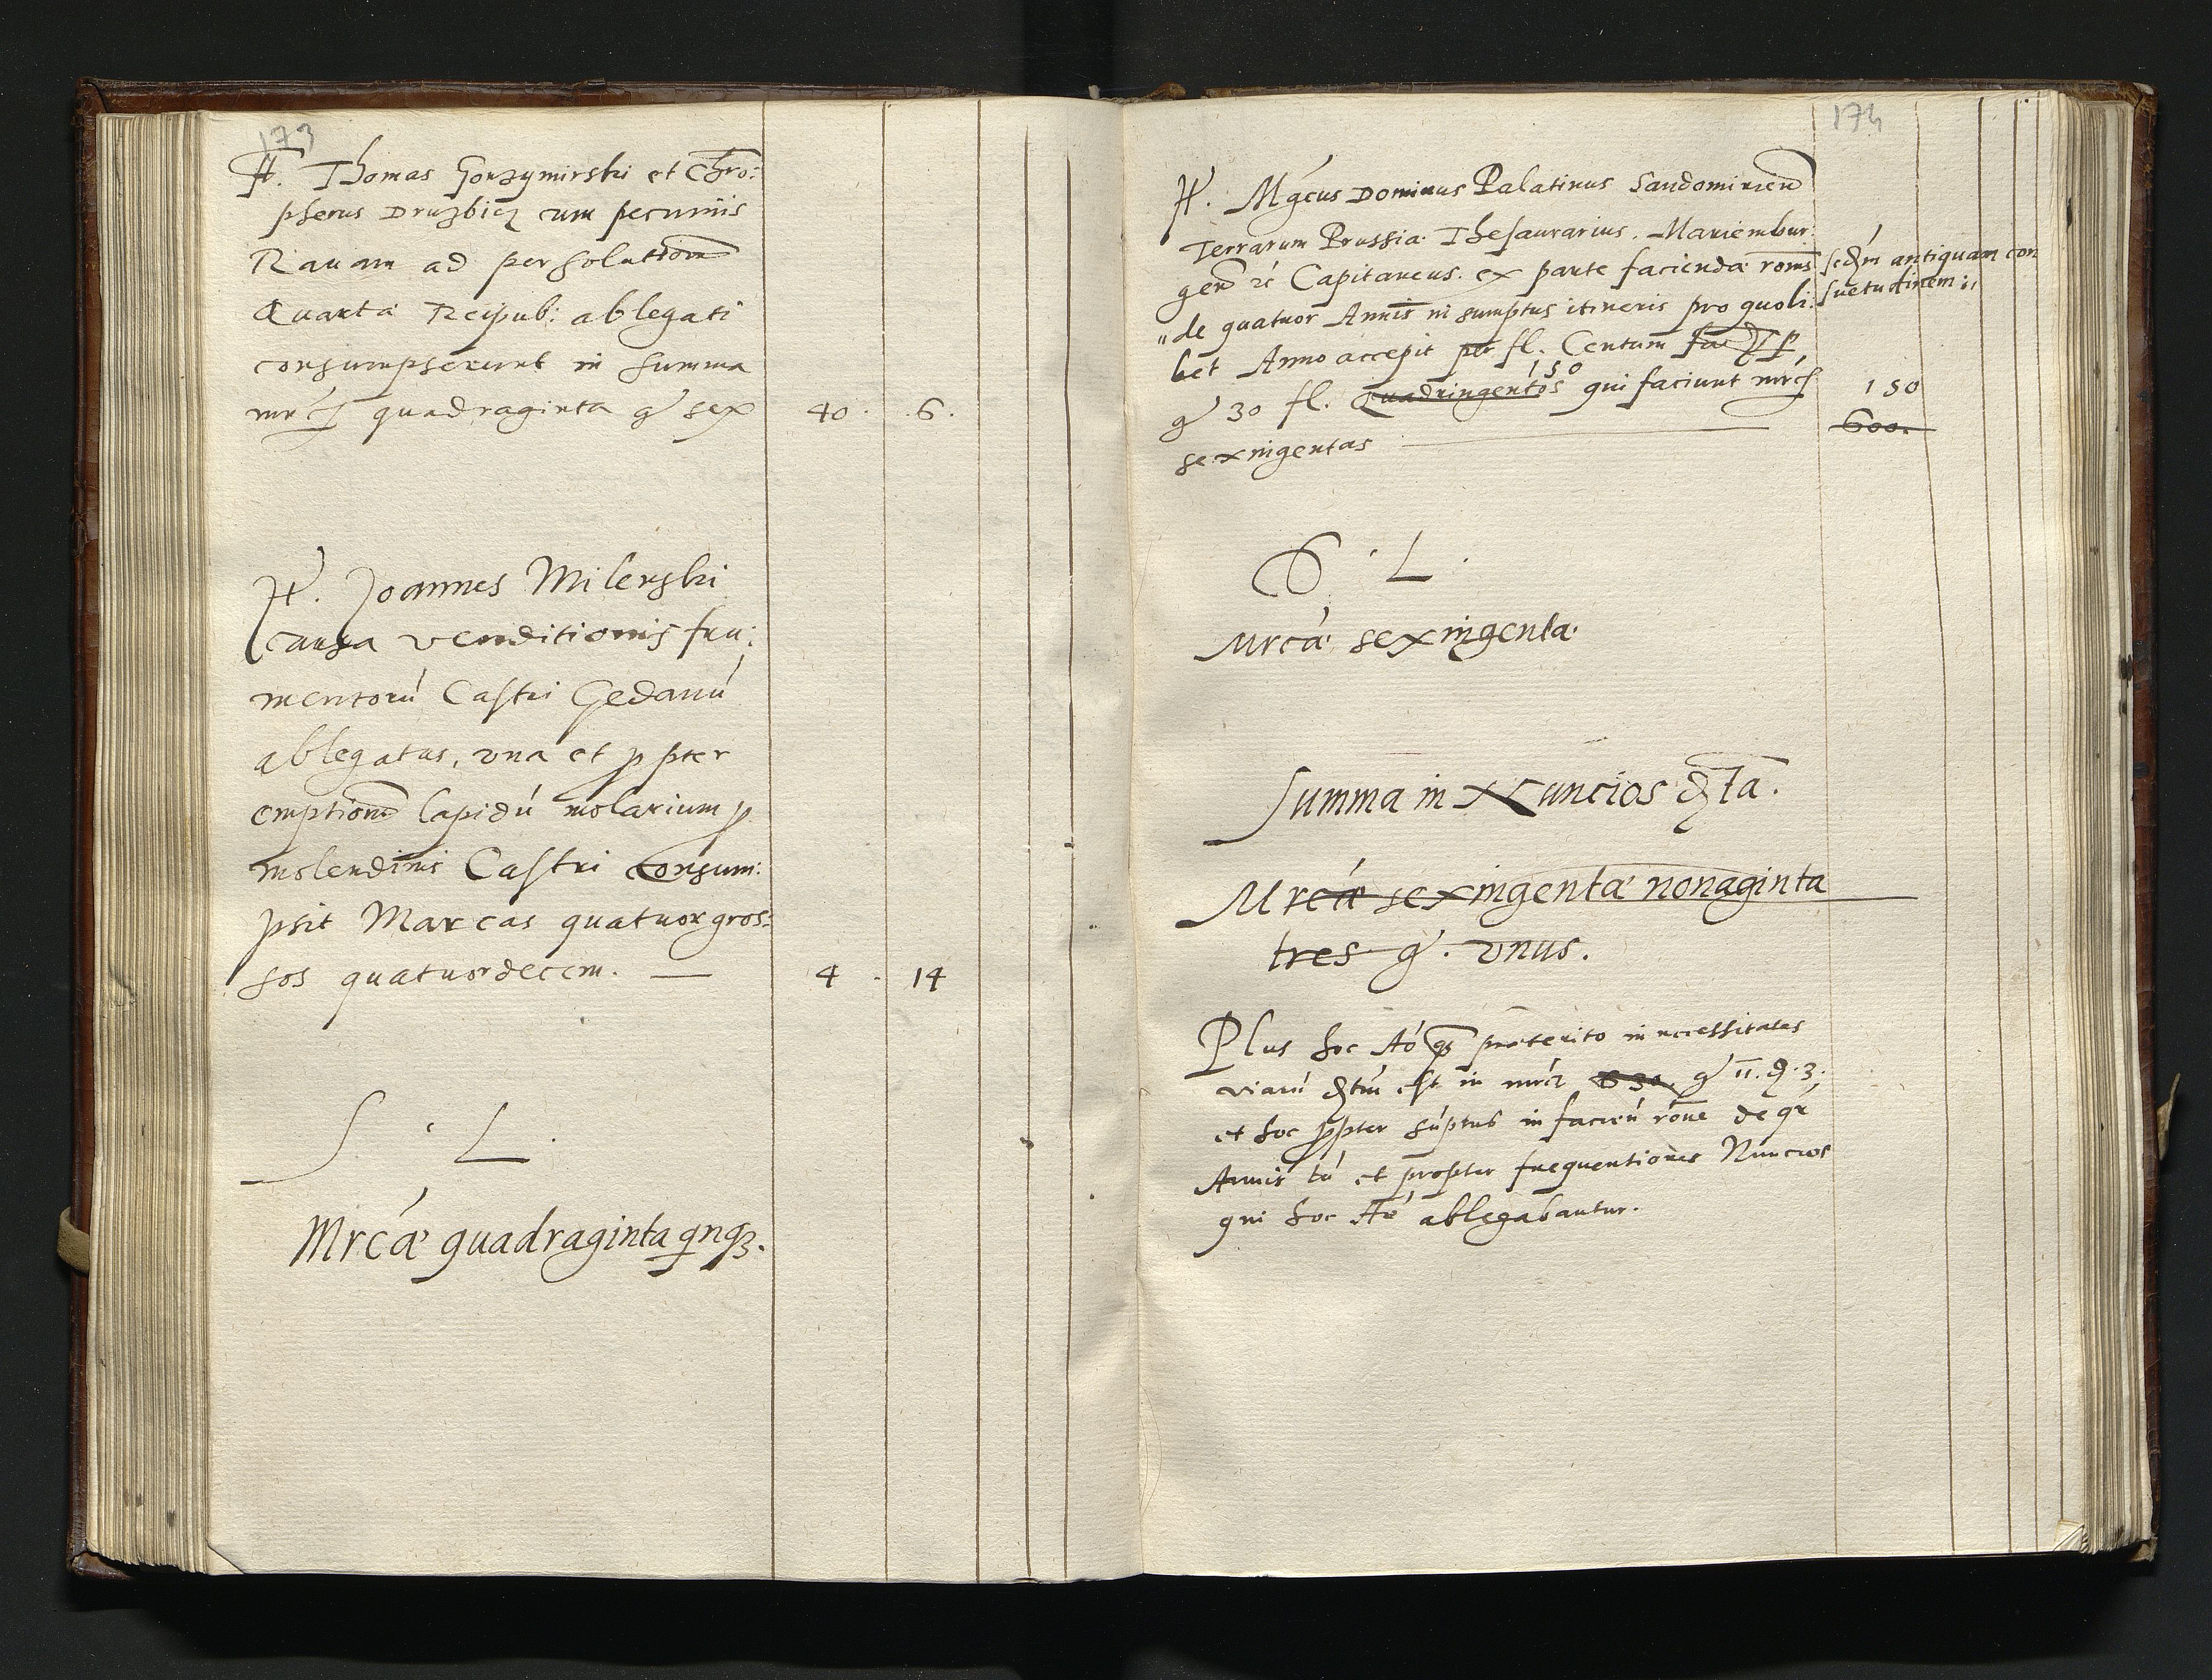 173
It. Thomas Gorzymirski et Chro:
pherus Druzbicz cum pecuniis
Ravam ad persolutiom
Quartæ Reipub: ablegati
consumpserunt in summa
mrc quadraginta g sex 40. .6.
It. Joannes Milerski
causa venditionis fru:
mentorú Castri Gedanú
ablegatus, una et ppter
emptiom lapidú molarium p
molendinis Castri consum:
psit Marcas quatuor gros:
sos quatuordecem. — 4. 14
S. L.
Mrcæ quadraginta qnq3.
174
It. Mgcus Dominus Palatinus Sandomirien
Terrarum Prussiæ Thesaurarius. Mariembur:
gen zc Capitaneus. ex parte faciendæ romis secdm antiquam con
" de quatuor Annis in sumptus itineris pro quoli: suetudinem "
bet Anno accepit per fl. Centum fac
150
g 30 fl. Quadringentos qui faciunt mrc 150
sexingentas 600.
S. L.
Mrcæ sexingentæ
Summa in Nuncios dta.
Mrcæ sexingentæ nonaginta
tres g. unus.
Plus hoc Ao q præterito in necessitates
viarú dtú est in mrc 630. g 11. d. 3.
et hoc ppter súptus in facien róne de qr
Annis tú et propter frequentiones Nuncios
qui hoc Ao ablegabantur.